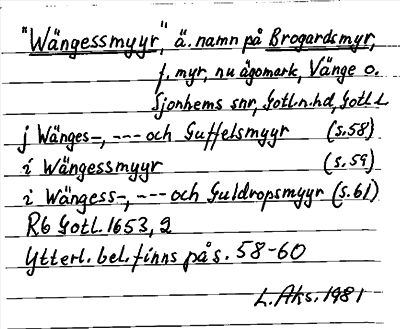 "Wängessmyyr," ä. namn på Brogardsmyr,
f. myr, nu ägomark, Vänge o.
Sjonhems snr, Gotl.n.hd, Gotl.l.
j Wänges-, --- och Guffelsmyyr (s.58)
i Wängessmyyr (s.59)
i Wängess-, --- och Guldropsmyyr (s.61)
Rb Gotl. 1653, 2
Ytterl. bel. finns på s. 58-60
L.Aks. 1981